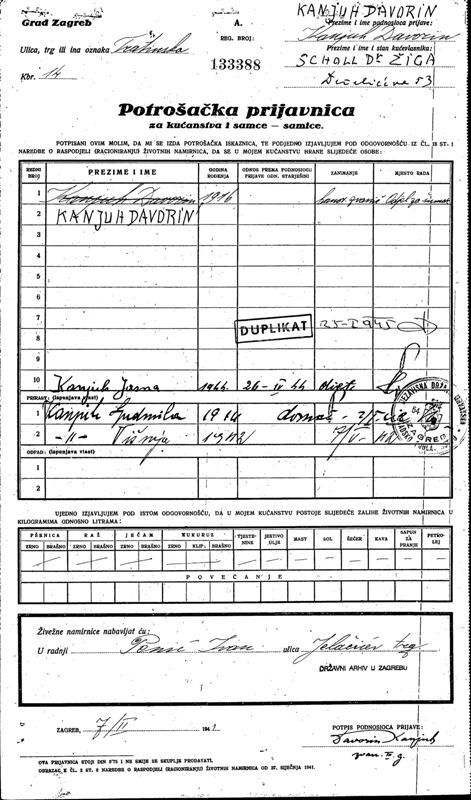 Grad Zagreb
A.
KANJUH DAVORIN
Prezime i ime podnosioca prijave:
Kanjuh Davorin
REG. BROJ:
Ulica, trg ili ina oznaka
133388
Prezime i ime i stan kućevlasnika:
SCHOLL Dr ŽIGA
Kbr. 14
53
Potrošačka prijavnica
za kućanstva i samce — samice.
POTPISANI OVIM MOLIM, DA MI SE IZDA POTROŠAČKA ISKAZNICA, TE PODJEDNO IZJAVLJUJEM POD ODGOVORNOŠĆU IZ ČL. 18 ST. 1
NAREDBE O RASPODJELI (RACIONIRANJU) ŽIVOTNIH NAMIRNICA, DA SE U MOJEM KUĆANSTVU HRANE SLIJEDEĆE OSOBE:
REDNI BROJ PREZIME I IME GODINA ROĐENJA ODNOS PREMA PODNOSIOCU PRIJAVE ODN. STARJEŠINI ZANIMANJE MJESTO RADA
1 Kanjuh Davorin 1916
2 KANJUH DAVORIN
3
4
5
6
7
DUPLIKAT 25-I-1945
8
9
10 Kanjuh Jasna 1944. 26-IV 44 dijete
PRIRAST: (ispunjava vlast)
1 Kanjuh Ljudmila 1914
2 -"- Višnja 1942
ZAGREB
OTPAD: (ispunjava vlast)
1
2
UJEDNO IZJAVLJUJEM POD ISTOM ODGOVORNOŠĆU, DA U MOJEM KUĆANSTVU POSTOJE SLIJEDEĆE ZALIHE ŽIVOTNIH NAMIRNICA U
KILOGRAMIMA ODNOSNO LITRAMA:
PŠENICA RAŽ JEČAM KUKURUZ TJESTENINE JESTIVO ULJE MAST SOL ŠEĆER KAVA SAPUN ZA PRANJE PETROLEJ
ZRNO BRAŠNO ZRNO BRAŠNO ZRNO BRAŠNO ZRNO KLIP. BRAŠNO
POVEĆANJE
Živežne namirnice nabavljat ću:
U radnji Ivan ulica Jelačićev trg
DRŽAVNI ARHIV U ZAGREBU
ZAGREB, 7/II 1941
POTPIS PODNOSIOCA PRIJAVE:
Davorin Kanjuh
OVA PRIJAVNICA STOJI DIN 0'75 I NE SMIJE SE SKUPLJE PRODAVATI.
OBRAZAC K ČL. 2 ST. 8 NAREDBE O RASPODJELI (RACIONIRANJU) ŽIVOTNIH NAMIRNICA OD 27. SIJEČNJA 1941.